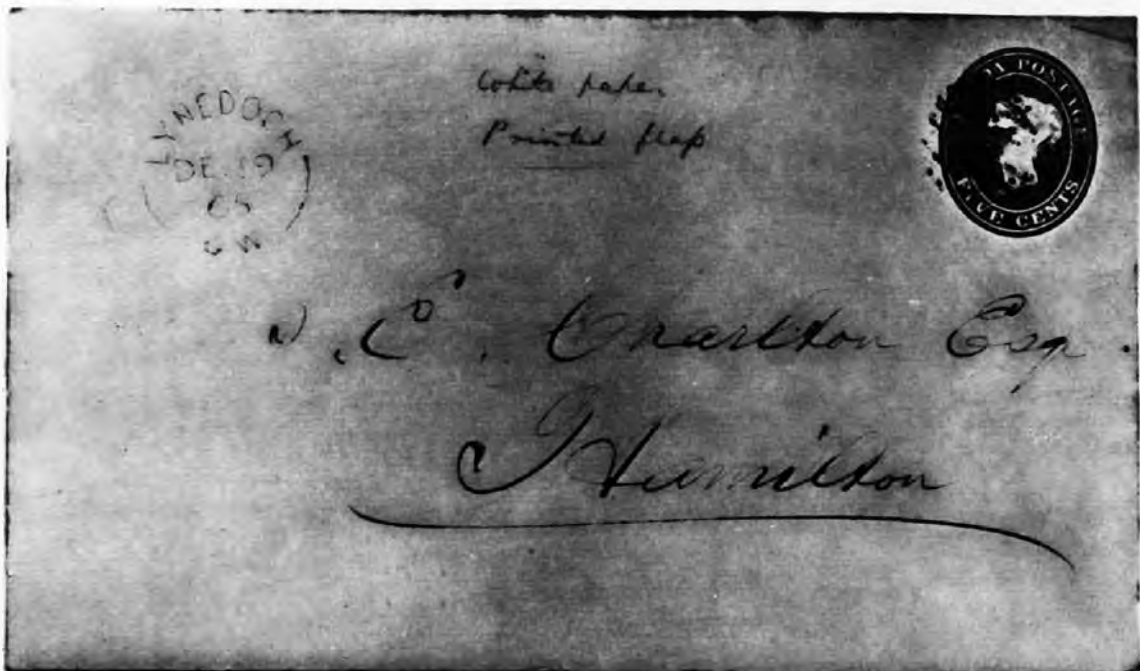 LYNEDOCH
DE 19
65
C W
White paper
Printed flap
POSTAGE
FIVE CENTS
C. Charlton Esq.
Hamilton